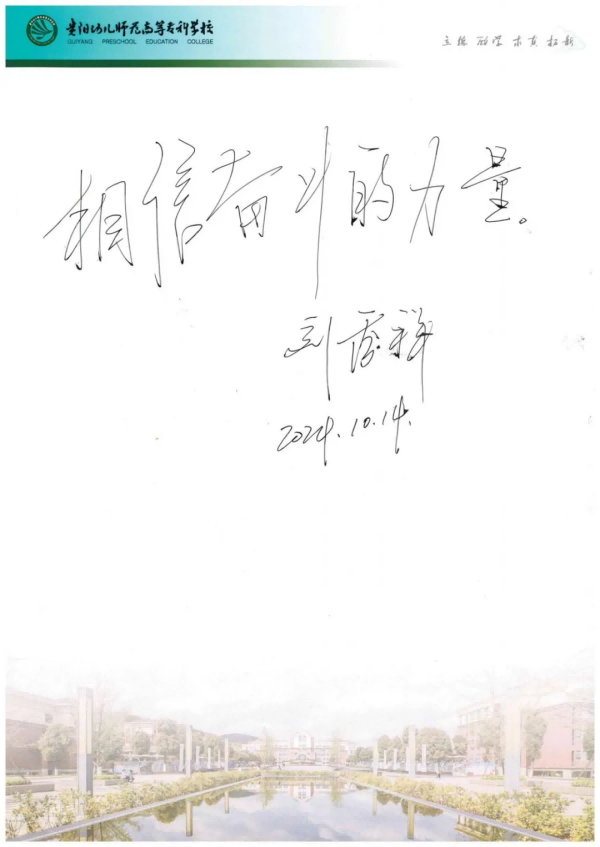 贵阳幼儿师范高等专科学校
GUIYANG PRESCHOOL EDUCATION COLLEGE
立德 启学 求真 拓新
相信奋斗的力量。
刘秀祥
2024.10.14.